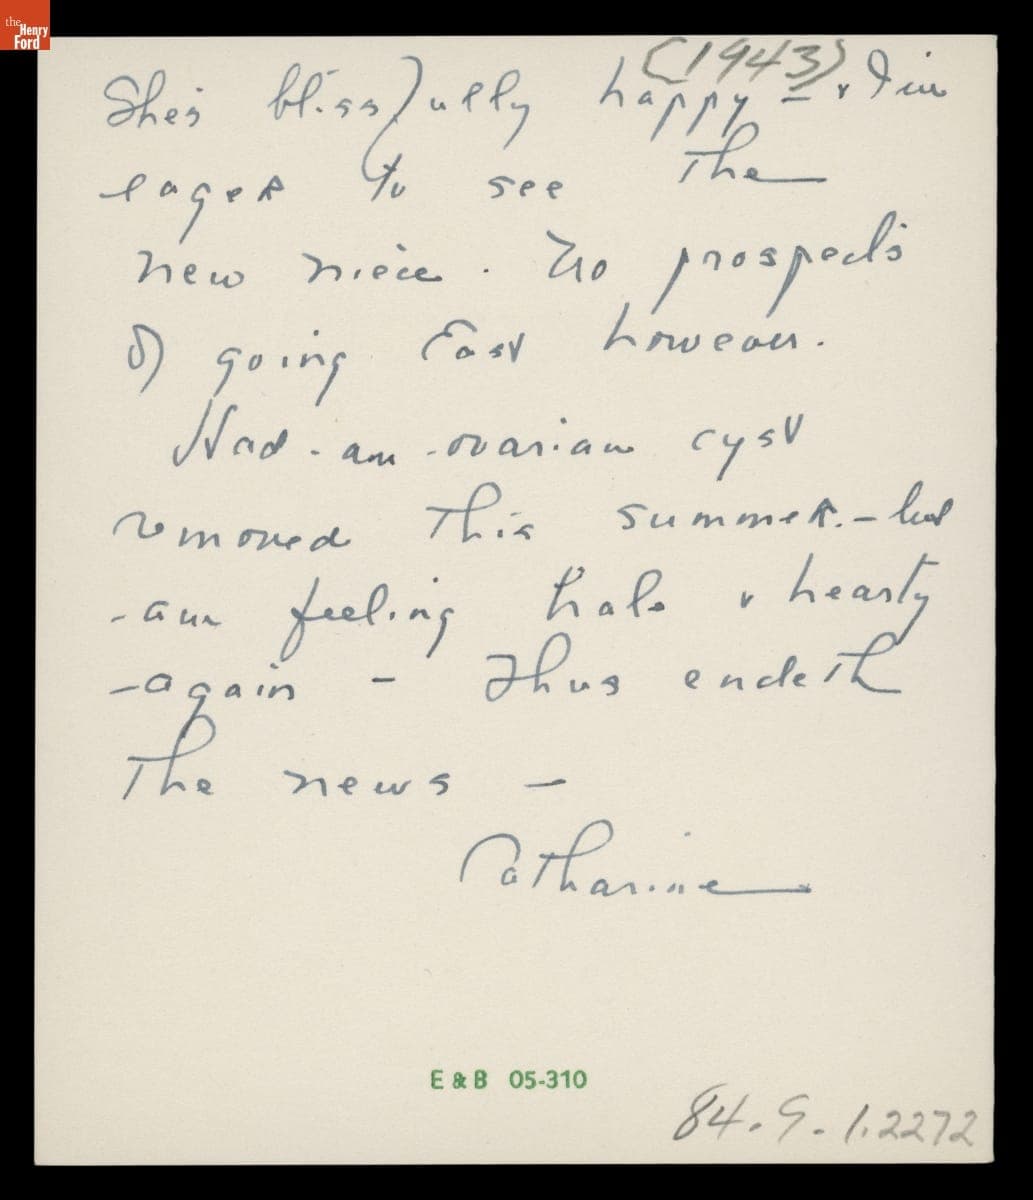 the
Henry
Ford
(1943)
She's blissfully happy - & I'm
eager to see the
new niece. No prospects
of going East however.
Had - an - ovarian cyst
removed this summer. - but
- am feeling hale & hearty
- again - Thus endeth
the news -
Catharine
E & B 05-310
84.9.1.2272